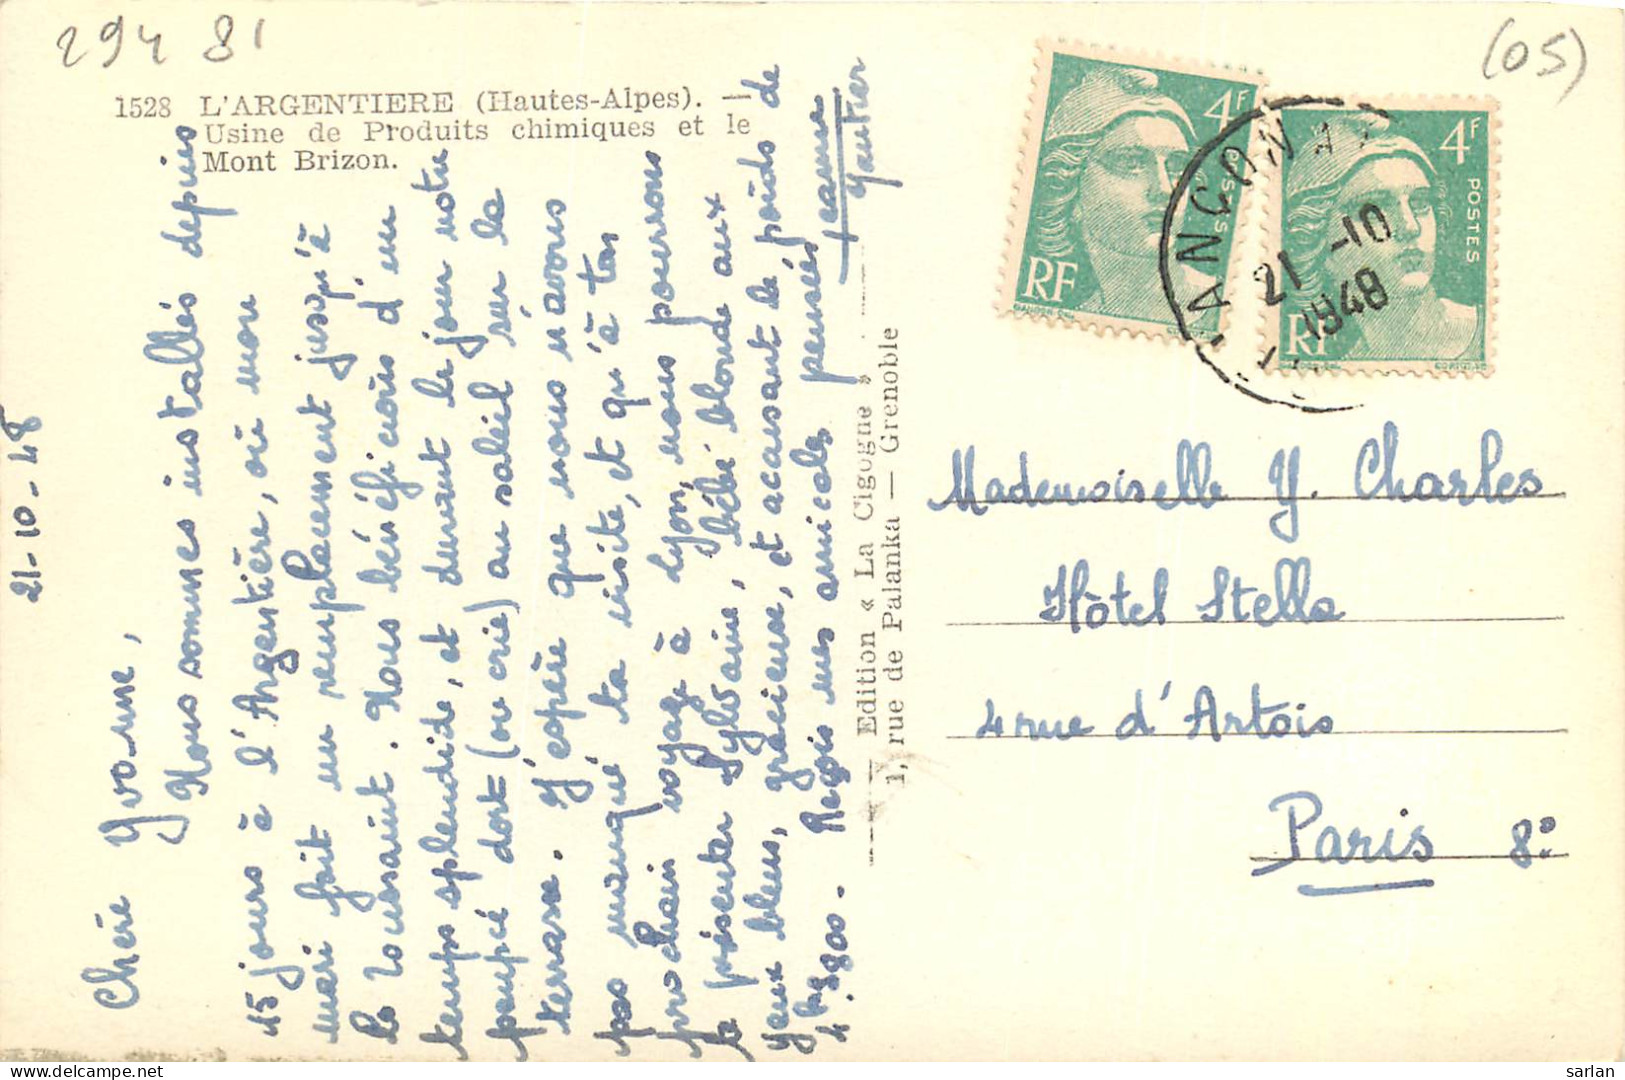 294 81
(05)
1528 L'ARGENTIERE (Hautes-Alpes). —
Usine de Produits chimiques et le
Mont Brizon.
21-10-48
Chère Yvonne,
Nous sommes installés depuis
15 jours à l'Argentière, où mon
mari fait un remplacement jusqu'à
la Toussaint. Nous bénéficions d'un
temps splendide, et durant le jour notre
poupée dort (ou crie) au soleil sur la
terrasse. J'espère que nous n'avons
pas manqué ta visite, et qu'à ton
prochain voyage à Lyon, nous pourrons
te présenter Sylvaine, bébé blonde aux
yeux bleus, gracieuse, et accusant le poids de
4 kgs 800. Reçois mes amicales pensées
Jeanne
Gautier
Edition « La Cigogne »
1, rue de Palanka — Grenoble
4F
POSTES
RF
GANDON-DEL.
4F
POSTES
RF
GANDON-DEL. CORTOT-SC
LANGOGNA
21 -10
1948
Mademoiselle Y. Charles
Hôtel Stella
4 rue d'Artois
Paris 8°
sarlan